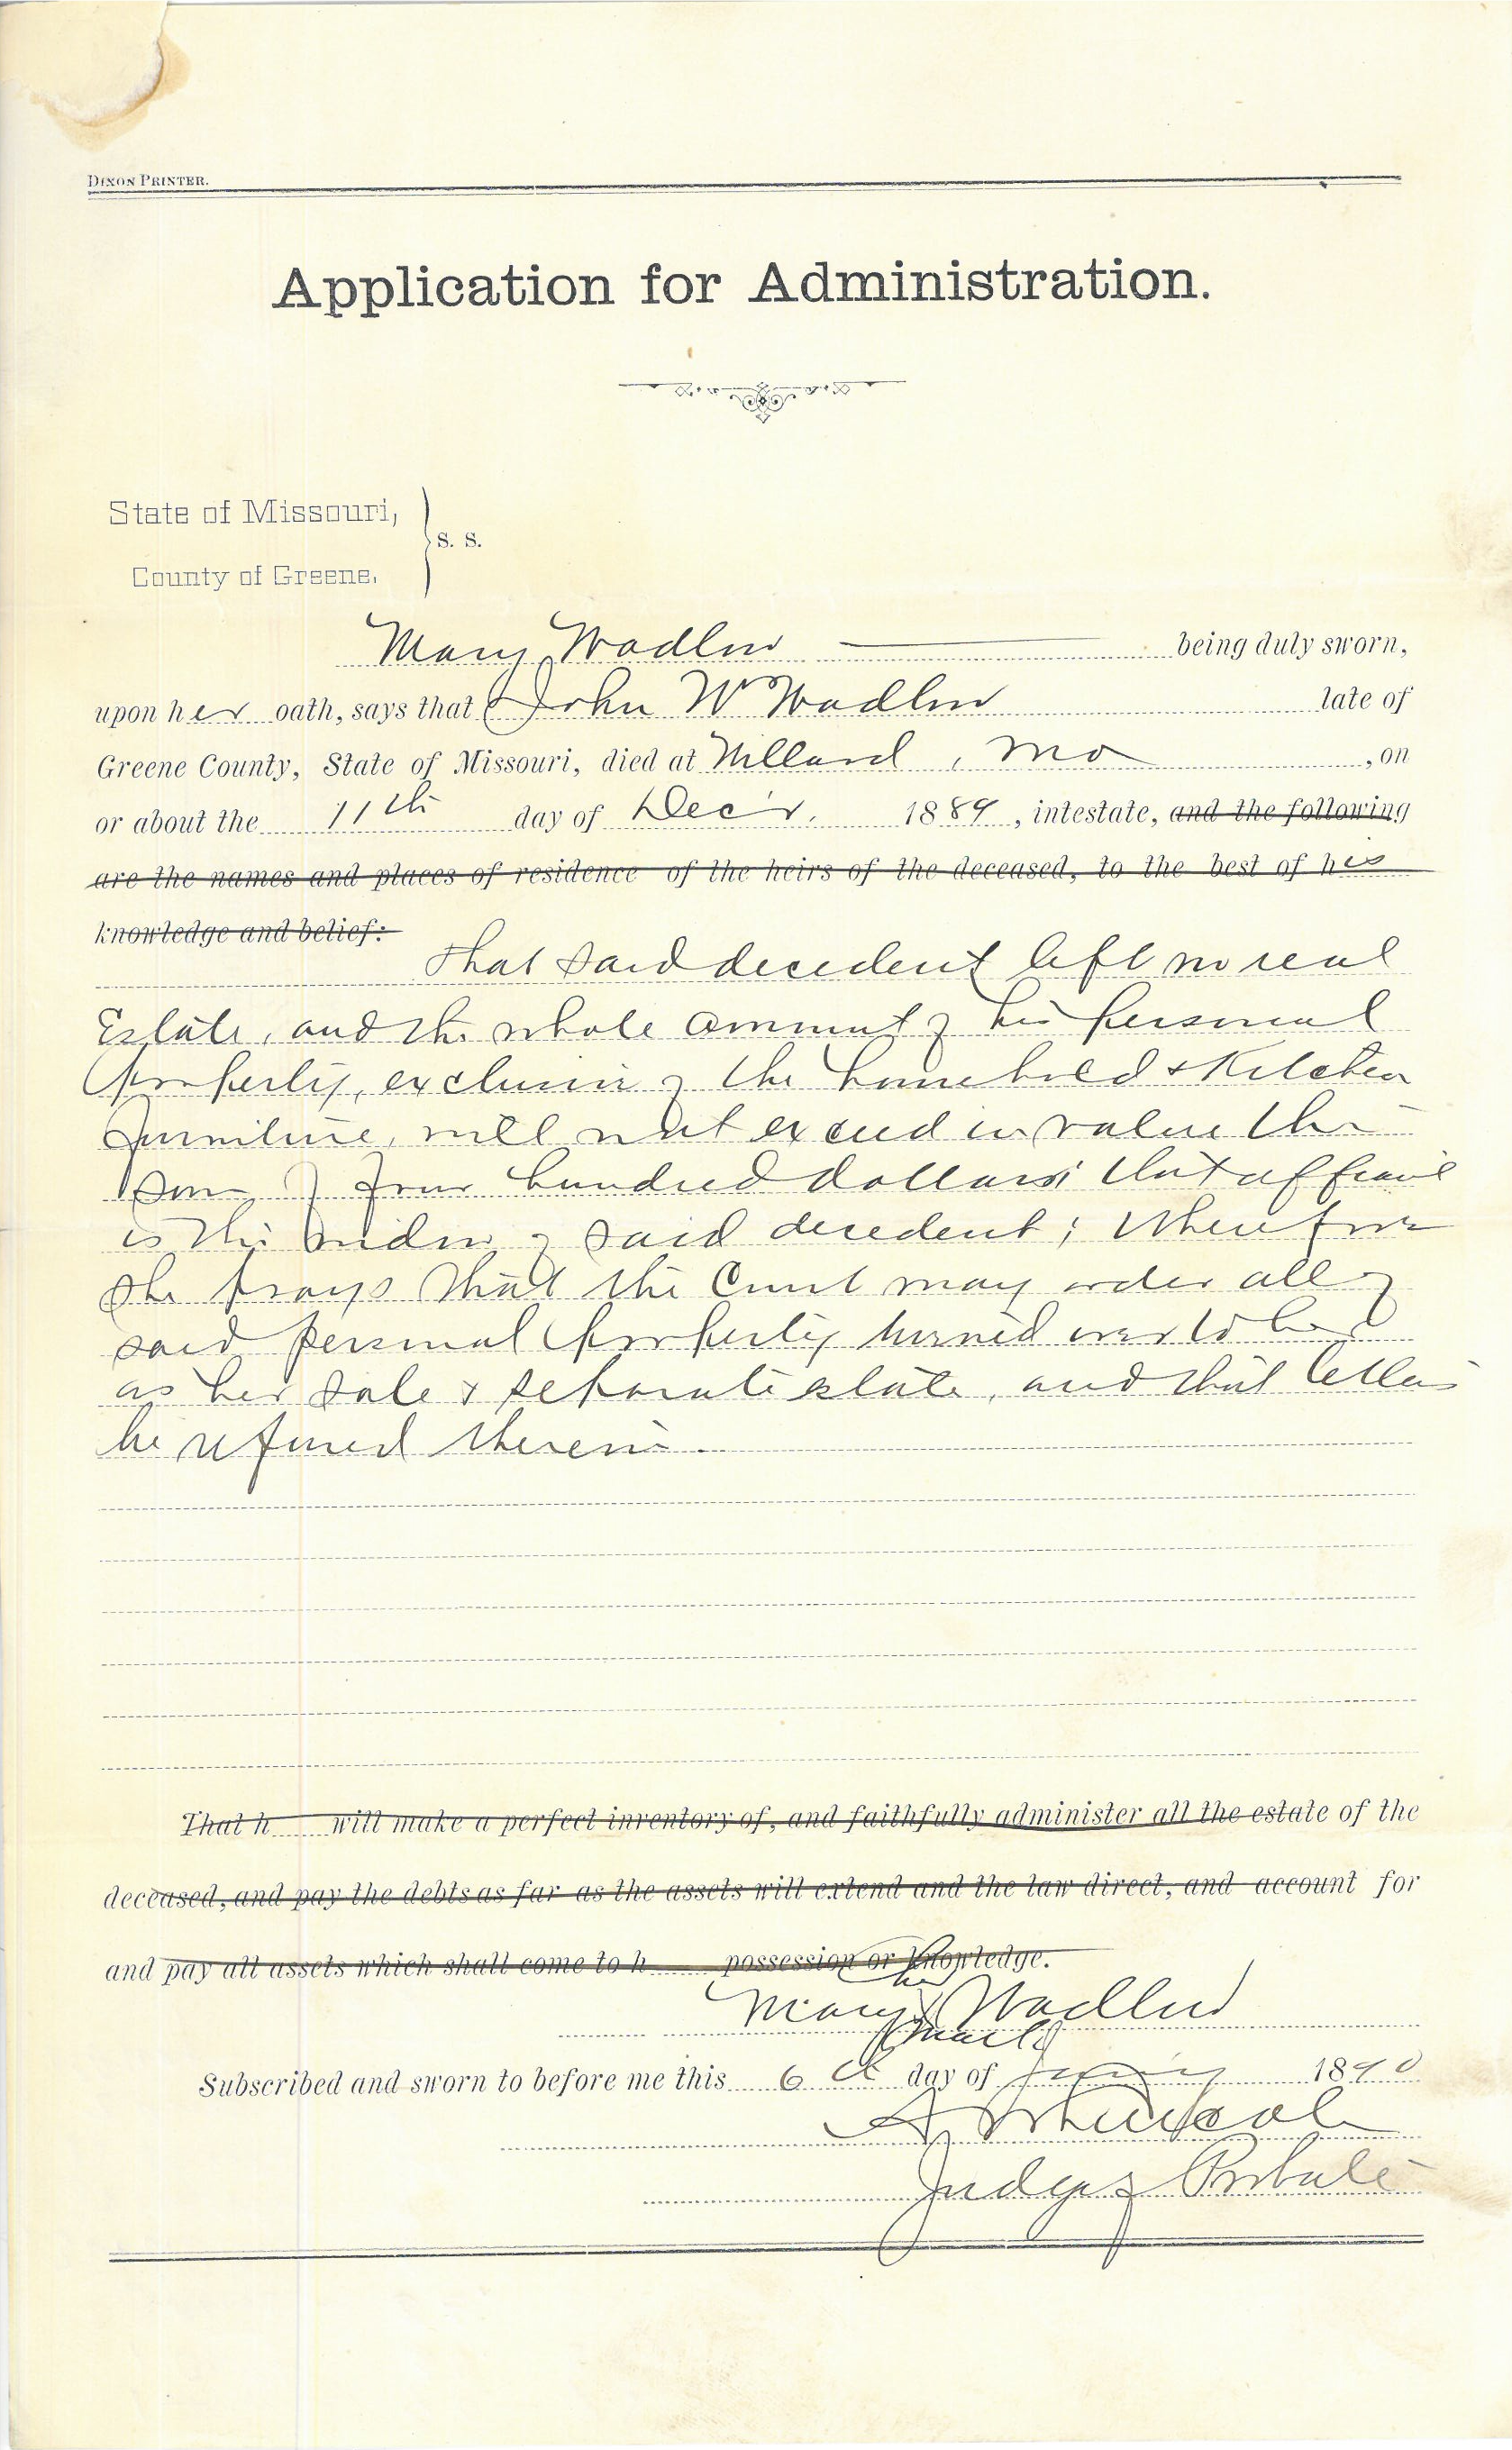 DIXON PRINTER.
Application for Administration.
State of Missouri,
S. S.
County of Greene.
Mary Wadlow being duly sworn,
upon her oath, says that John W Wadlow late of
Greene County, State of Missouri, died at Willard, Mo, on
or about the 11th day of Dec'r. 1889, intestate, and the following
are the names and places of residence of the heirs of the deceased, to the best of his
knowledge and belief:
that said decedent left no real
Estate, and the whole amount of his personal
property, exclusive of the household & Kitchen
furniture, will not exceed in value the
sum of four hundred dollars; that affiant
is the widow of said decedent; Wherefore
she prays that the Court may order all of
said personal property turned over to her
as her sole & separate estate, and that letters
be refused therein.
That h will make a perfect inventory of, and faithfully administer all the estate of the
deceased, and pay the debts as far as the assets will extend and the law direct, and account for
and pay all assets which shall come to h possession or knowledge.
her
Mary X Wadlow
mark
Subscribed and sworn to before me this 6th day of Jany 1890
Judge of Probate